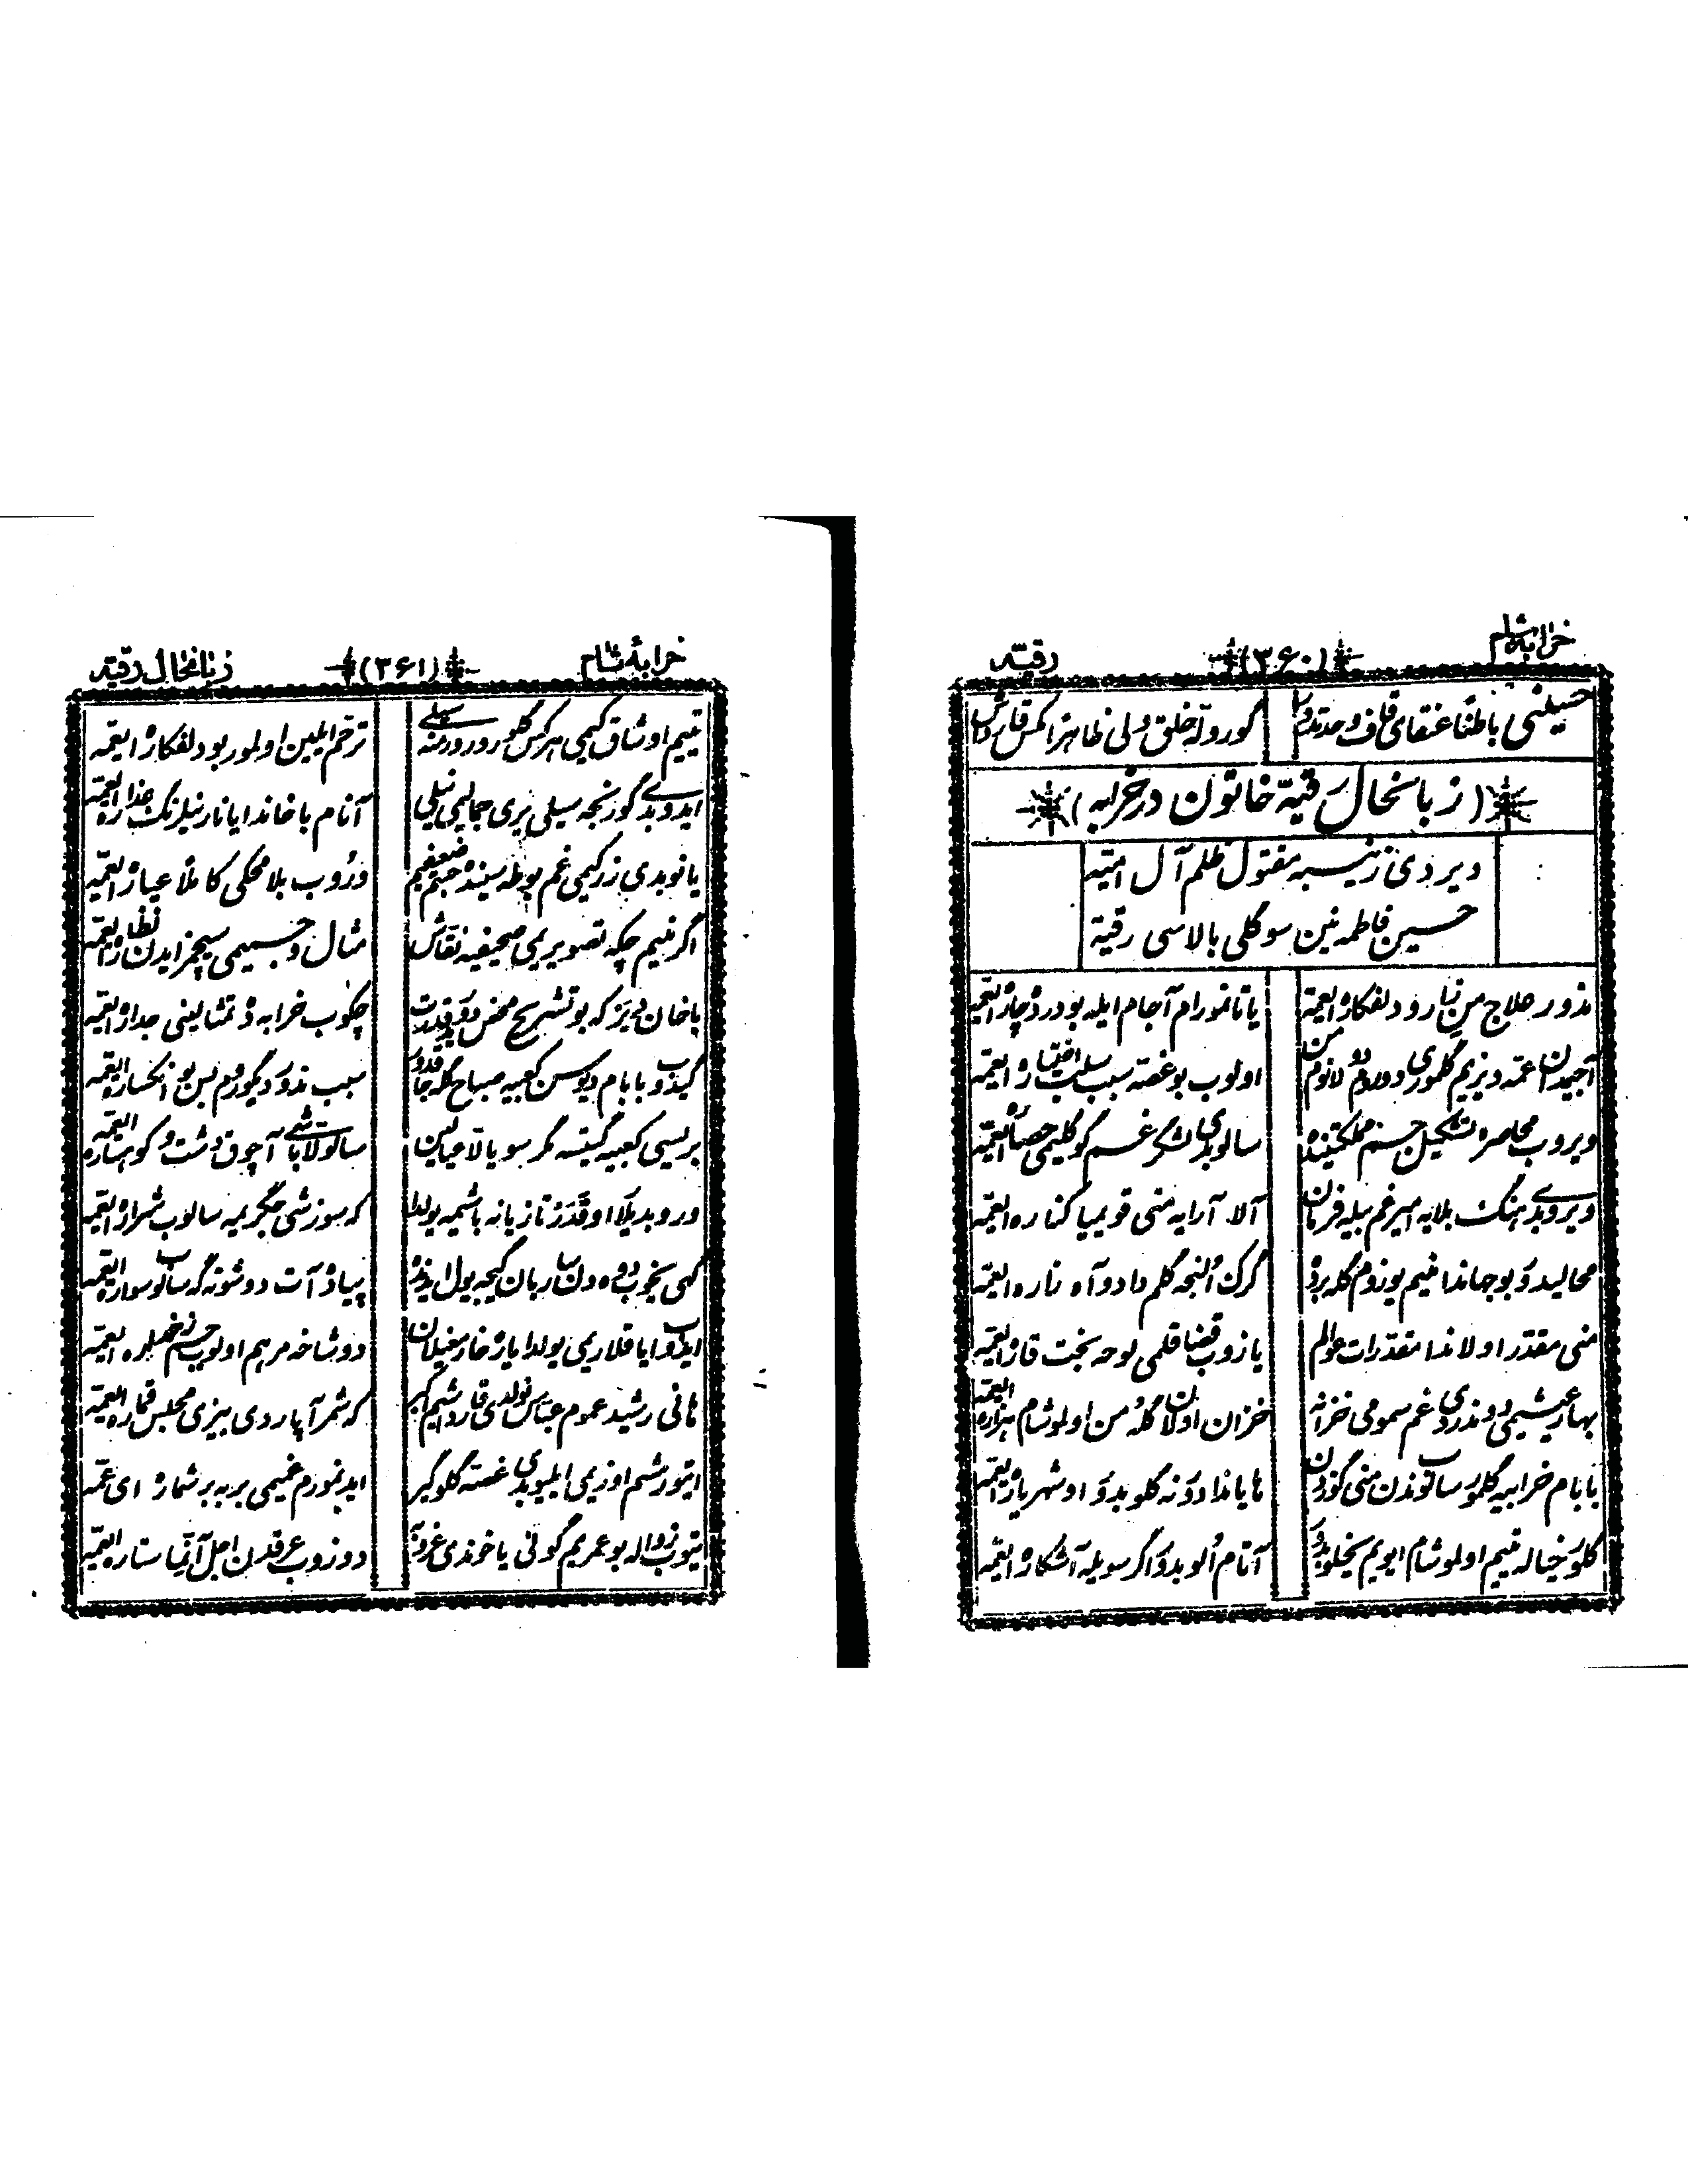 خرابهٔ شام (۳۶۰) رقیّه
حسینی باطنًا عنقای قاف وحدتدور گورو لّه خلق ولی ظاهرًا
(زبانحال رقیّه خاتون در خرابه)
دیردی زینبه مقتول ظلم آل امیّه
حسین فاطمه نین سوگلی بالاسی رقیّه
ندور علاج من زار و دلفکاره ای عمّه یاتانمورام آجام ایله بو درد چاره ای عمّه
آجیمدان عمّه دیزیم گلموری دوروم دولانوم من اولوب بو غصّه سبب سلب اختیاره ای عمّه
ویروب محاصره تشکیل جسم مملکتینده سالوبدی لشگر غم گوگلیمی حصاره ای عمّه
ویروبدی نهنگ بلایه امیر غم بیله فرمان آلا آرایه منی قویمیا کناره ای عمّه
محالیدو بو جهاندا منیم یوزوم گله بیرده گرک اُلنجه گلم داد و آه و زاره ای عمّه
منی مقدّر اولاندا مقدّرات عوالم یازوب قضا قلمی لوحه بخت قاره ای عمّه
بهار عیشیمی دوندردی غم سمومی خزانه خزان اولان گلُه من اولموشام هزاره ای عمّه
بابام خرابیه گلمور سالوب گوزدن منی گوزدن هایاندا دور نه گلوبدو او شهریاره ای عمّه
گلور خیاله منیم اولموشام ایویم یخلوبدور آتام اُلوبدو اگر سویله آشکاره ای عمّه
خرابهٔ شام (۳۶۱) زبانحال رقیّه
یتیم اوشاق کیمی هرکس گلور ورور منه سیلی ترحّم ایلمین اولمور بو دلفکاره ای عمّه
ایدوبدی گور نجه سیلی یری جمالیمی نیلی آنام باخاندا یانار نیلرنگ عذاره ای عمّه
یانوبدی زر کیمی غم بوطه سینده جسم ضعیفیم وروب بلا محکی کاملًا عیاره ای عمّه
اگر منیم چکه تصویریمی صحیفیه نقّاش مثال جسمیمی سیچمز ایدن نظاره ای عمّه
باخان دیر که بو تشریح محض دور قدرت چکوب خرابه ده تمثالینی جداره ای عمّه
گیدوب بابام دیوسن کعبیه صباح گله جاقدور سبب ندور دیگوروم بس بو انکساره ای عمّه
بریسی کعبیه گیتسه مگر سو یالا عیالین سالولا باشی آچوق دشت و کوهساره ای عمّه
وروبدیلا او قدر تازیانه باشیمه یولدا که سوزشی جگریمه سالوب شراره ای عمّه
گهی یخوب دوه دن ساربان گیجه یول ایچنده پیاده آت دوشونه گه سالوب سواره ای عمّه
ایدوب ایاقلاریمی یولدا یاره خار مغیلان دوشاخه مرهم اولوب جسم زخمداره ای عمّه
هانی رشید عموم عبّاس نولدی قارداشیم اکبر که شمر آپاردی بیزی مجلس قماره ای عمّه
ایتورمشم اوزیمی ایلیوبدی غصّه گلوگیر ایدنمورم غمیمی بر به بر شماره ای عمّه
یتوب زواله بو عمریم گونی یاخوندی غروبه دوزوب عرقدن اجل آلنیما ستاره ای عمّه